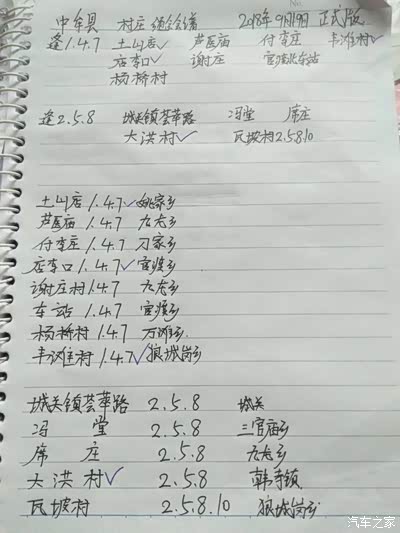 中牟县 村庄 2018年9月19日 正式版
逢1.4.7 土山店✓ 芦医庙 付李庄 丰滩村✓
店李口✓ 谢庄 官渡北车站
杨桥村
逢2.5.8 城关镇荟萃路 冯堂 席庄
大洪村✓ 瓦坡村2.5.8.10
土山店 1.4.7 ✓ 姚家乡
芦医庙 1.4.7 九龙乡
付李庄 1.4.7 刁家乡
店李口 1.4.7 ✓ 官渡乡
谢庄村 1.4.7 九龙乡
车站 1.4.7 官渡乡
杨桥村 1.4.7 万滩乡
丰滩村 1.4.7 ✓ 狼城岗乡
城关镇荟萃路 2.5.8 城关
冯堂 2.5.8 三官庙乡
席庄 2.5.8 九龙乡
大洪村✓ 2.5.8 韩寺镇
瓦坡村 2.5.8.10 狼城岗乡
汽车之家